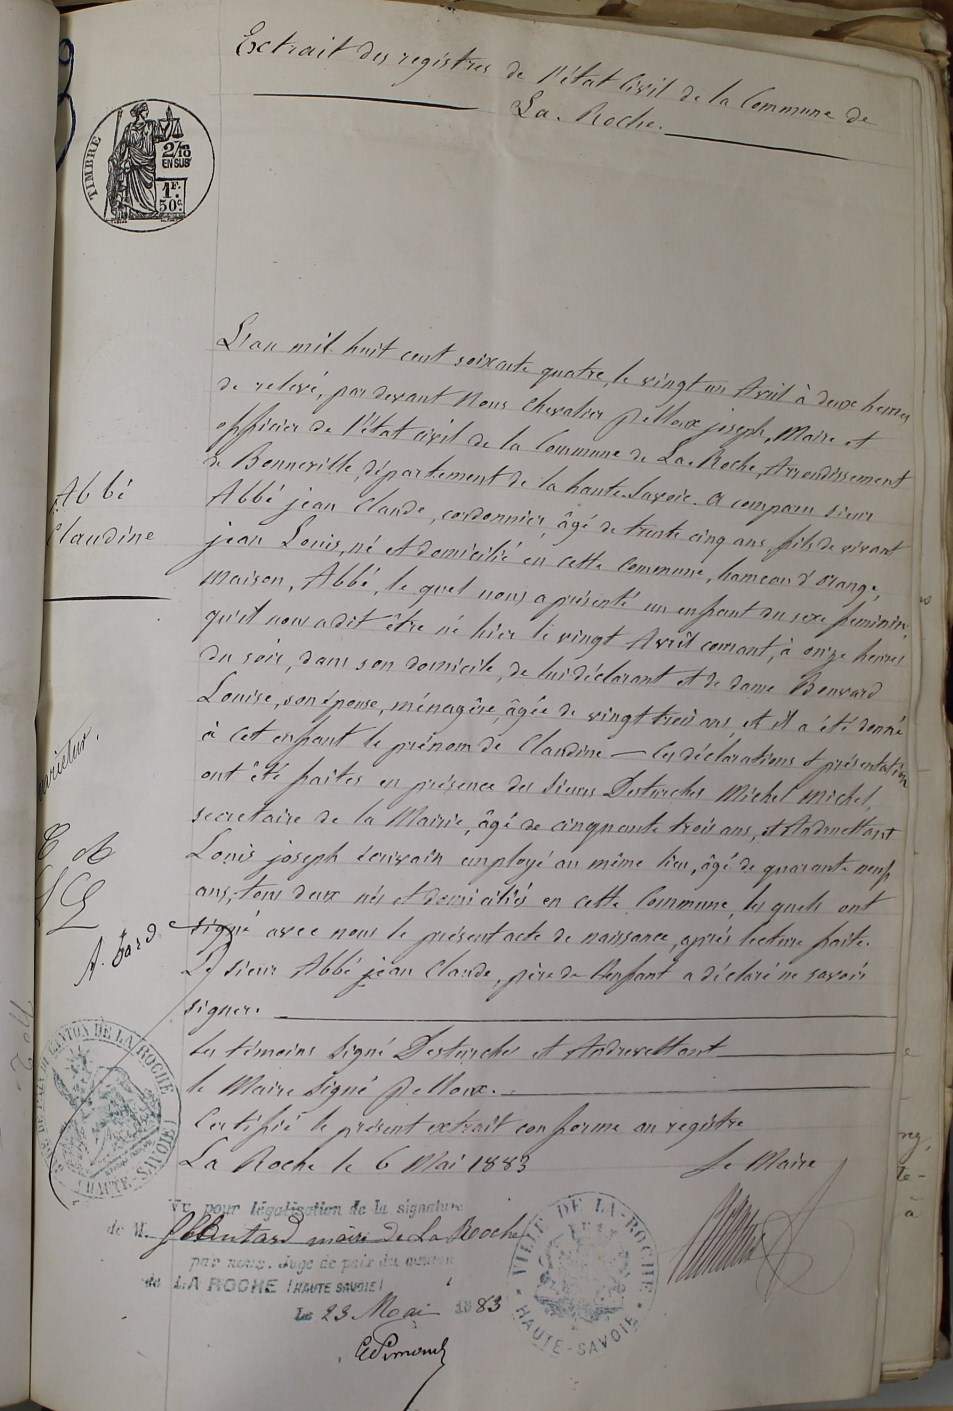 Extrait des registres de l'état Civil de la Commune de
La Roche.
TIMBRE
2/10
EN SUS
1F.
50c
L'an mil huit cent soixante quatre, le vingt un Avril à deux heures
de relevé, par devant Nous Chevalier Pelloux joseph, Maire et
officier de l'état civil de la Commune de La Roche, Arrondissement
de Bonneville, département de la haute Savoie. A comparu sieur
Abbé
Claudine
Abbé jean Claude, cordonnier, âgé de trente cinq ans, fils de vivant
jean Louis, né et domicilié en cette Commune, hameau d'orange,
maison, Abbé, le quel nous a présenté un enfant du sexe féminin,
qu'il nous a dit être né hier le vingt Avril courant, à onze heures
du soir, dans son domicile, de lui déclarant et de dame Bonvard
Louise, son épouse, ménagère, âgée de vingt trois ans, et il a été donné
à cet enfant le prénom de Claudine — Ces déclarations et présentation
ont été faites en présence des sieurs Desturches Michel Michel,
secretaire de la Mairie, âgé de cinquante trois ans, et Andrevettant
Louis joseph écrivain employé au même lieu, âgé de quarante neuf
ans, tous deux nés et domiciliés en cette Commune, les quels ont
signé avec nous le présent acte de naissance, après lecture faite.
Le sieur Abbé jean Claude, père de l'enfant a déclaré ne savoir
signer.
Les témoins signé Desturches et Andrevettant
le Maire Signé Pelloux.
Certifié le présent extrait conforme au registre
La Roche le 6 Mai 1883
Le Maire
Vu pour légalisation de la signature
de M. maire de La Roche
par nous, Juge de paix du canton
de LA ROCHE (HAUTE SAVOIE)
Le 23 Mai 1883
VILLE DE LA-ROCHE
HAUTE-SAVOIE
CANTON DE LA ROCHE
(HAUTE-SAVOIE)